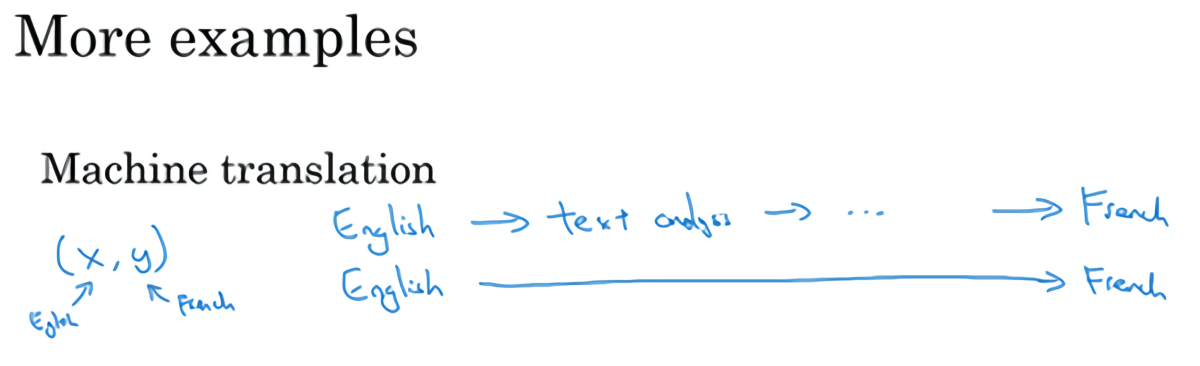 More examples
Machine translation
English → text analysis → ... → French
(x, y)
English → French
English French